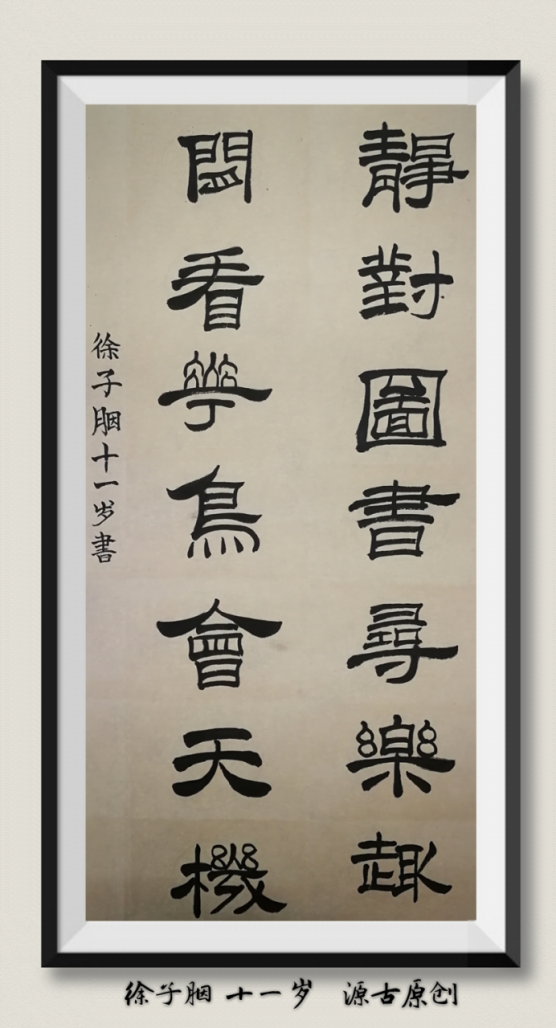 靜對圖書尋樂趣
閒看華鳥會天機
徐子胭十一岁書
徐子胭 十一岁 源古原创